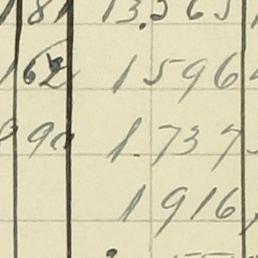 181 13.565
162 1596
890 1.737
1916